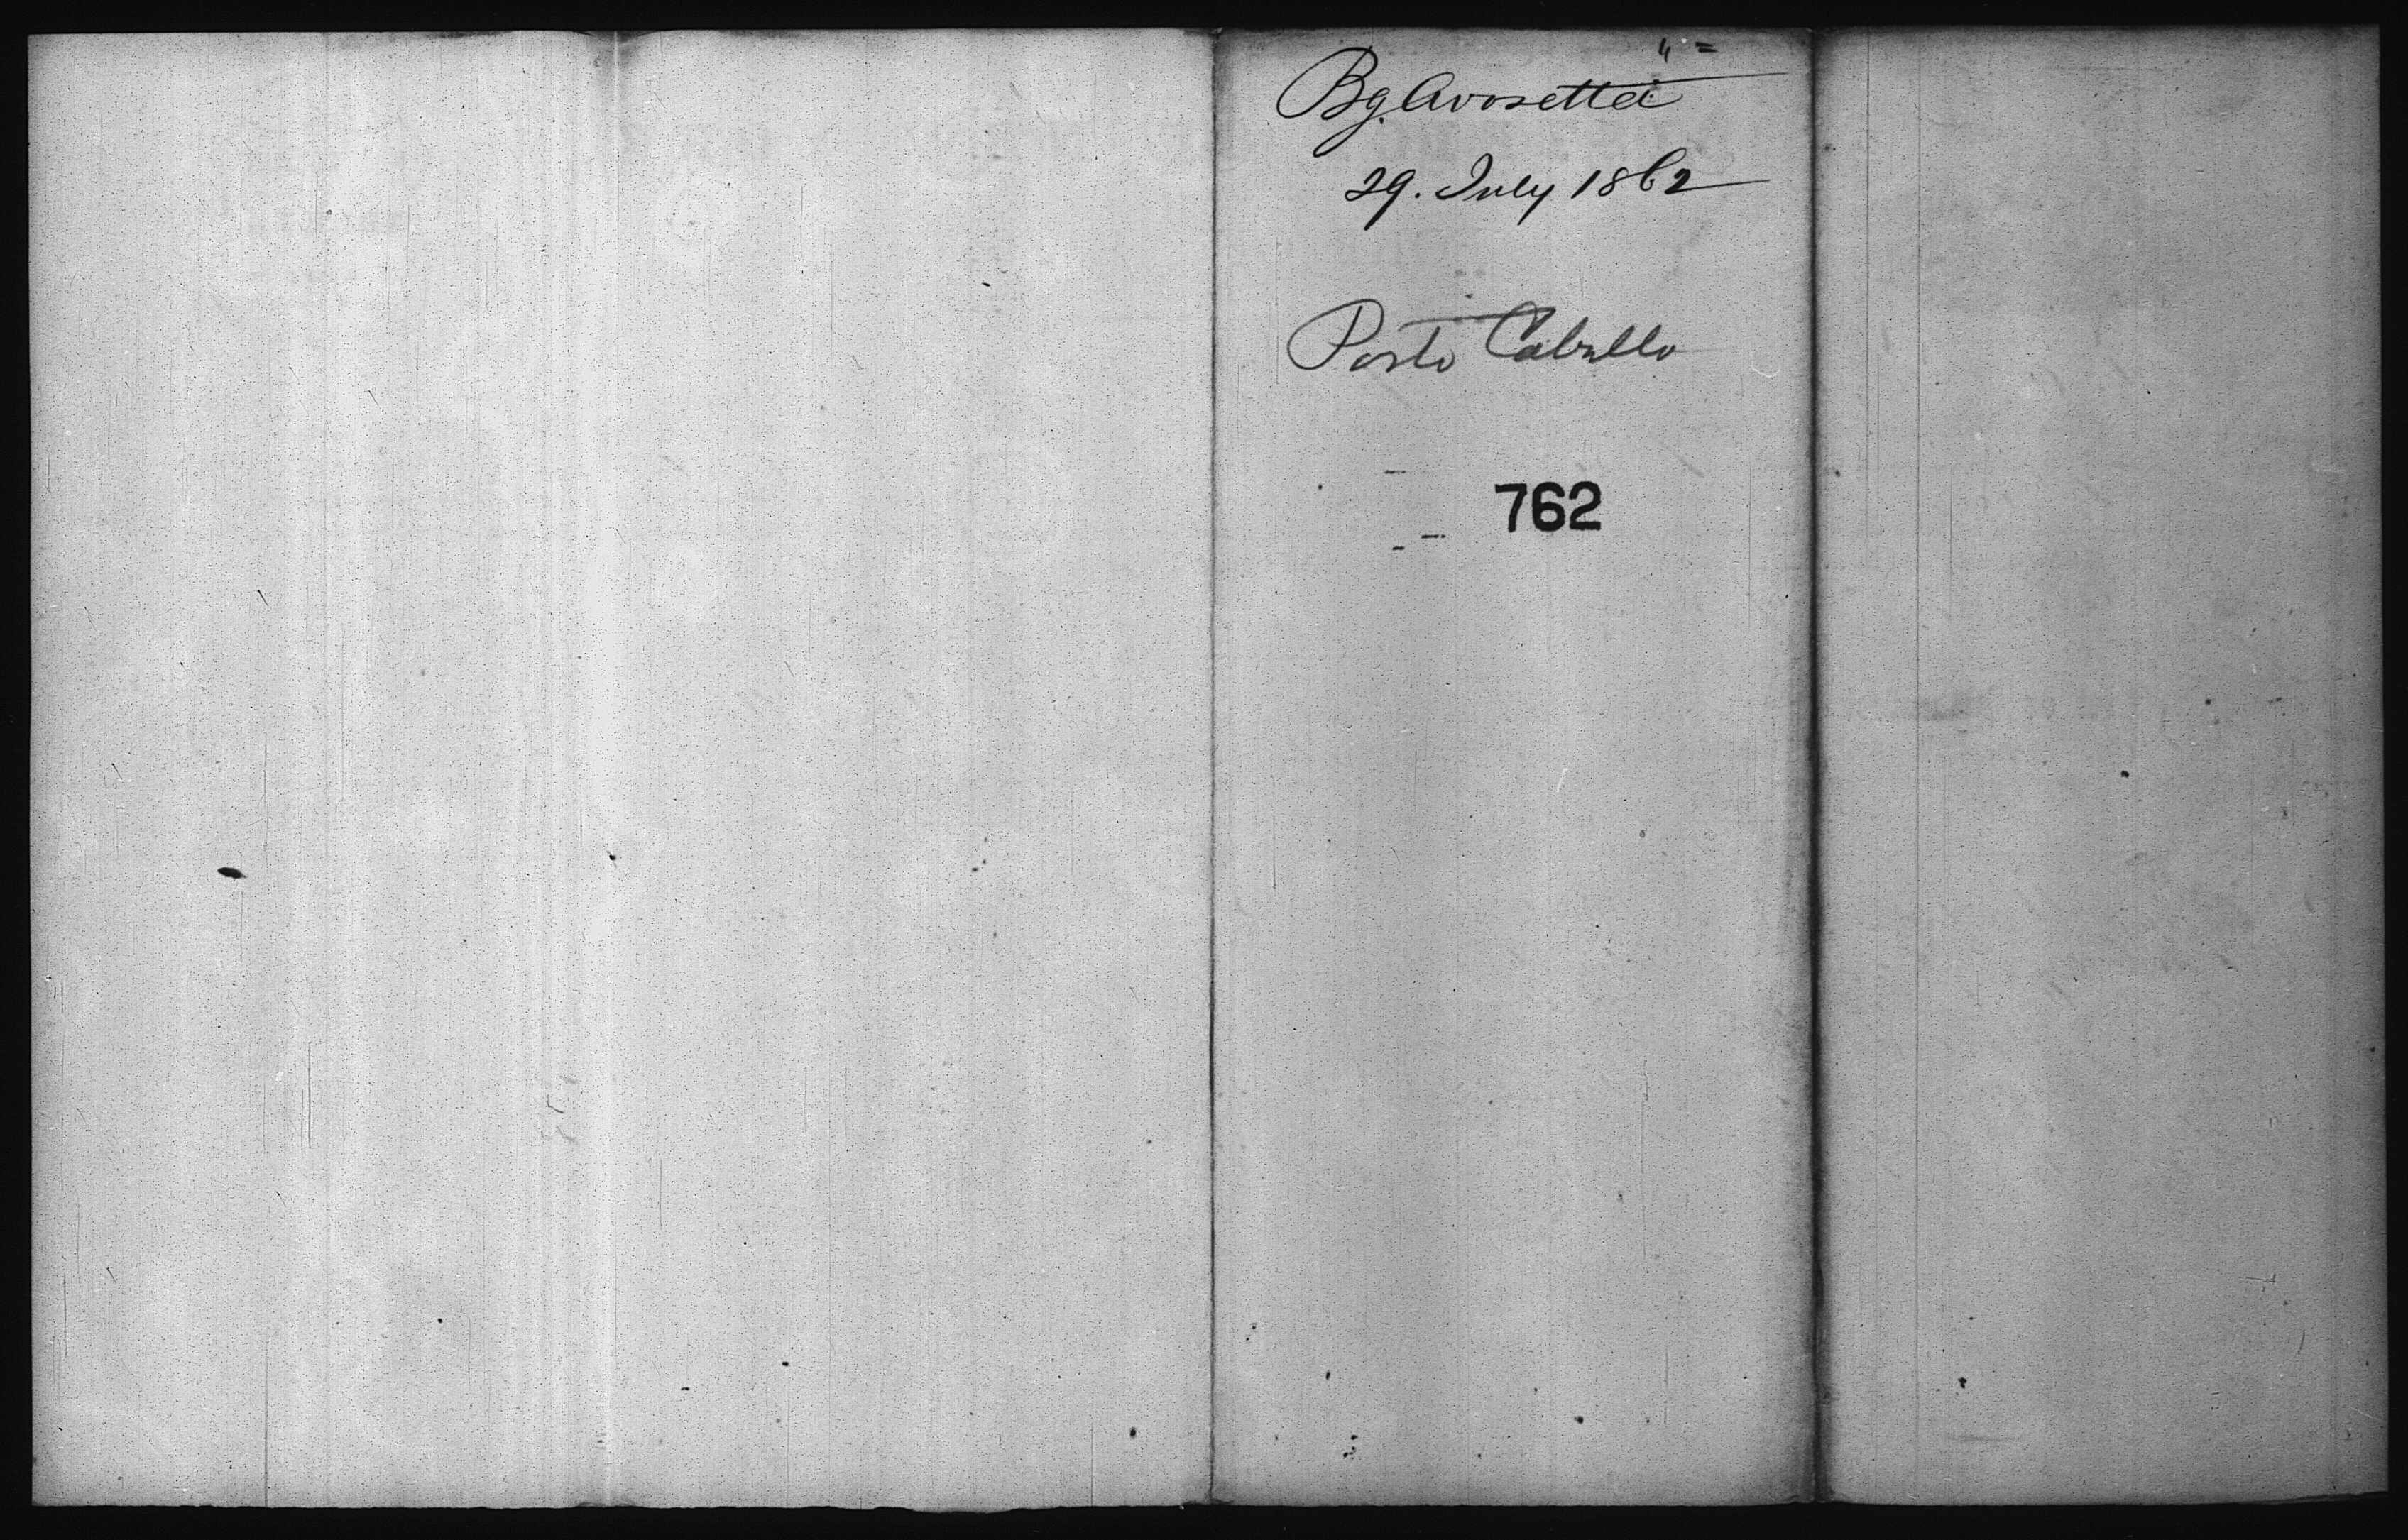 Bg. Avosetta
29. July 1862
Porto Cabello
762